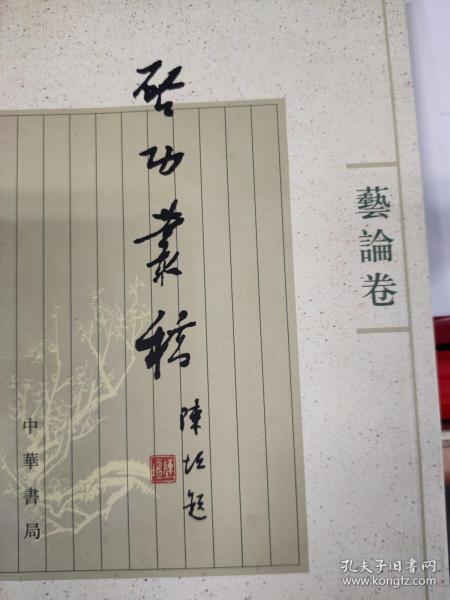 藝論卷
啓功叢稿
陳垣題
中華書局
孔夫子旧书网
www.kongfz.com